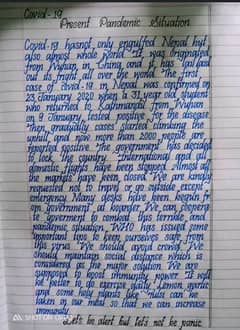 Covid-19
Present Pandemic Situation
Covid-19 hasnot only engulfed Nepal but
also almost whole world. It was originated
from Wuhan, in China and it has laid
out its fright all over the world. The first
case of covid-19 in Nepal was confirmed on
23 January 2020 when a 31 year old student
who returned to Kathmandu from Wuhan
on 9 January, tested positive for the disease
then gradually cases started climbing the
uphill, and now more than 2000 people are
reported positive. The government has decided
to lock the country. International and all
domestic flights have been stopped. Almost all
the markets have been closed. We are kindly
requested not to travel or go outside except
emergency. Many desks have been keepth by
government at boarder. We can cooperate
to goverment to combat this terrible and
pandemic situation. WHO has issued some
important tips to keep ourselves safe from
this virus. We should avoid crowd. We
should maintain social distance which is
considered as the major solution. We are
supposed to boost immunity power. It will
be better to do exercise daily. Lemon, garlic
and some help plants like can be
taken in our meal so that we can increase
immunity.
Let's be alert but let's not be panic
SHOT ON MI